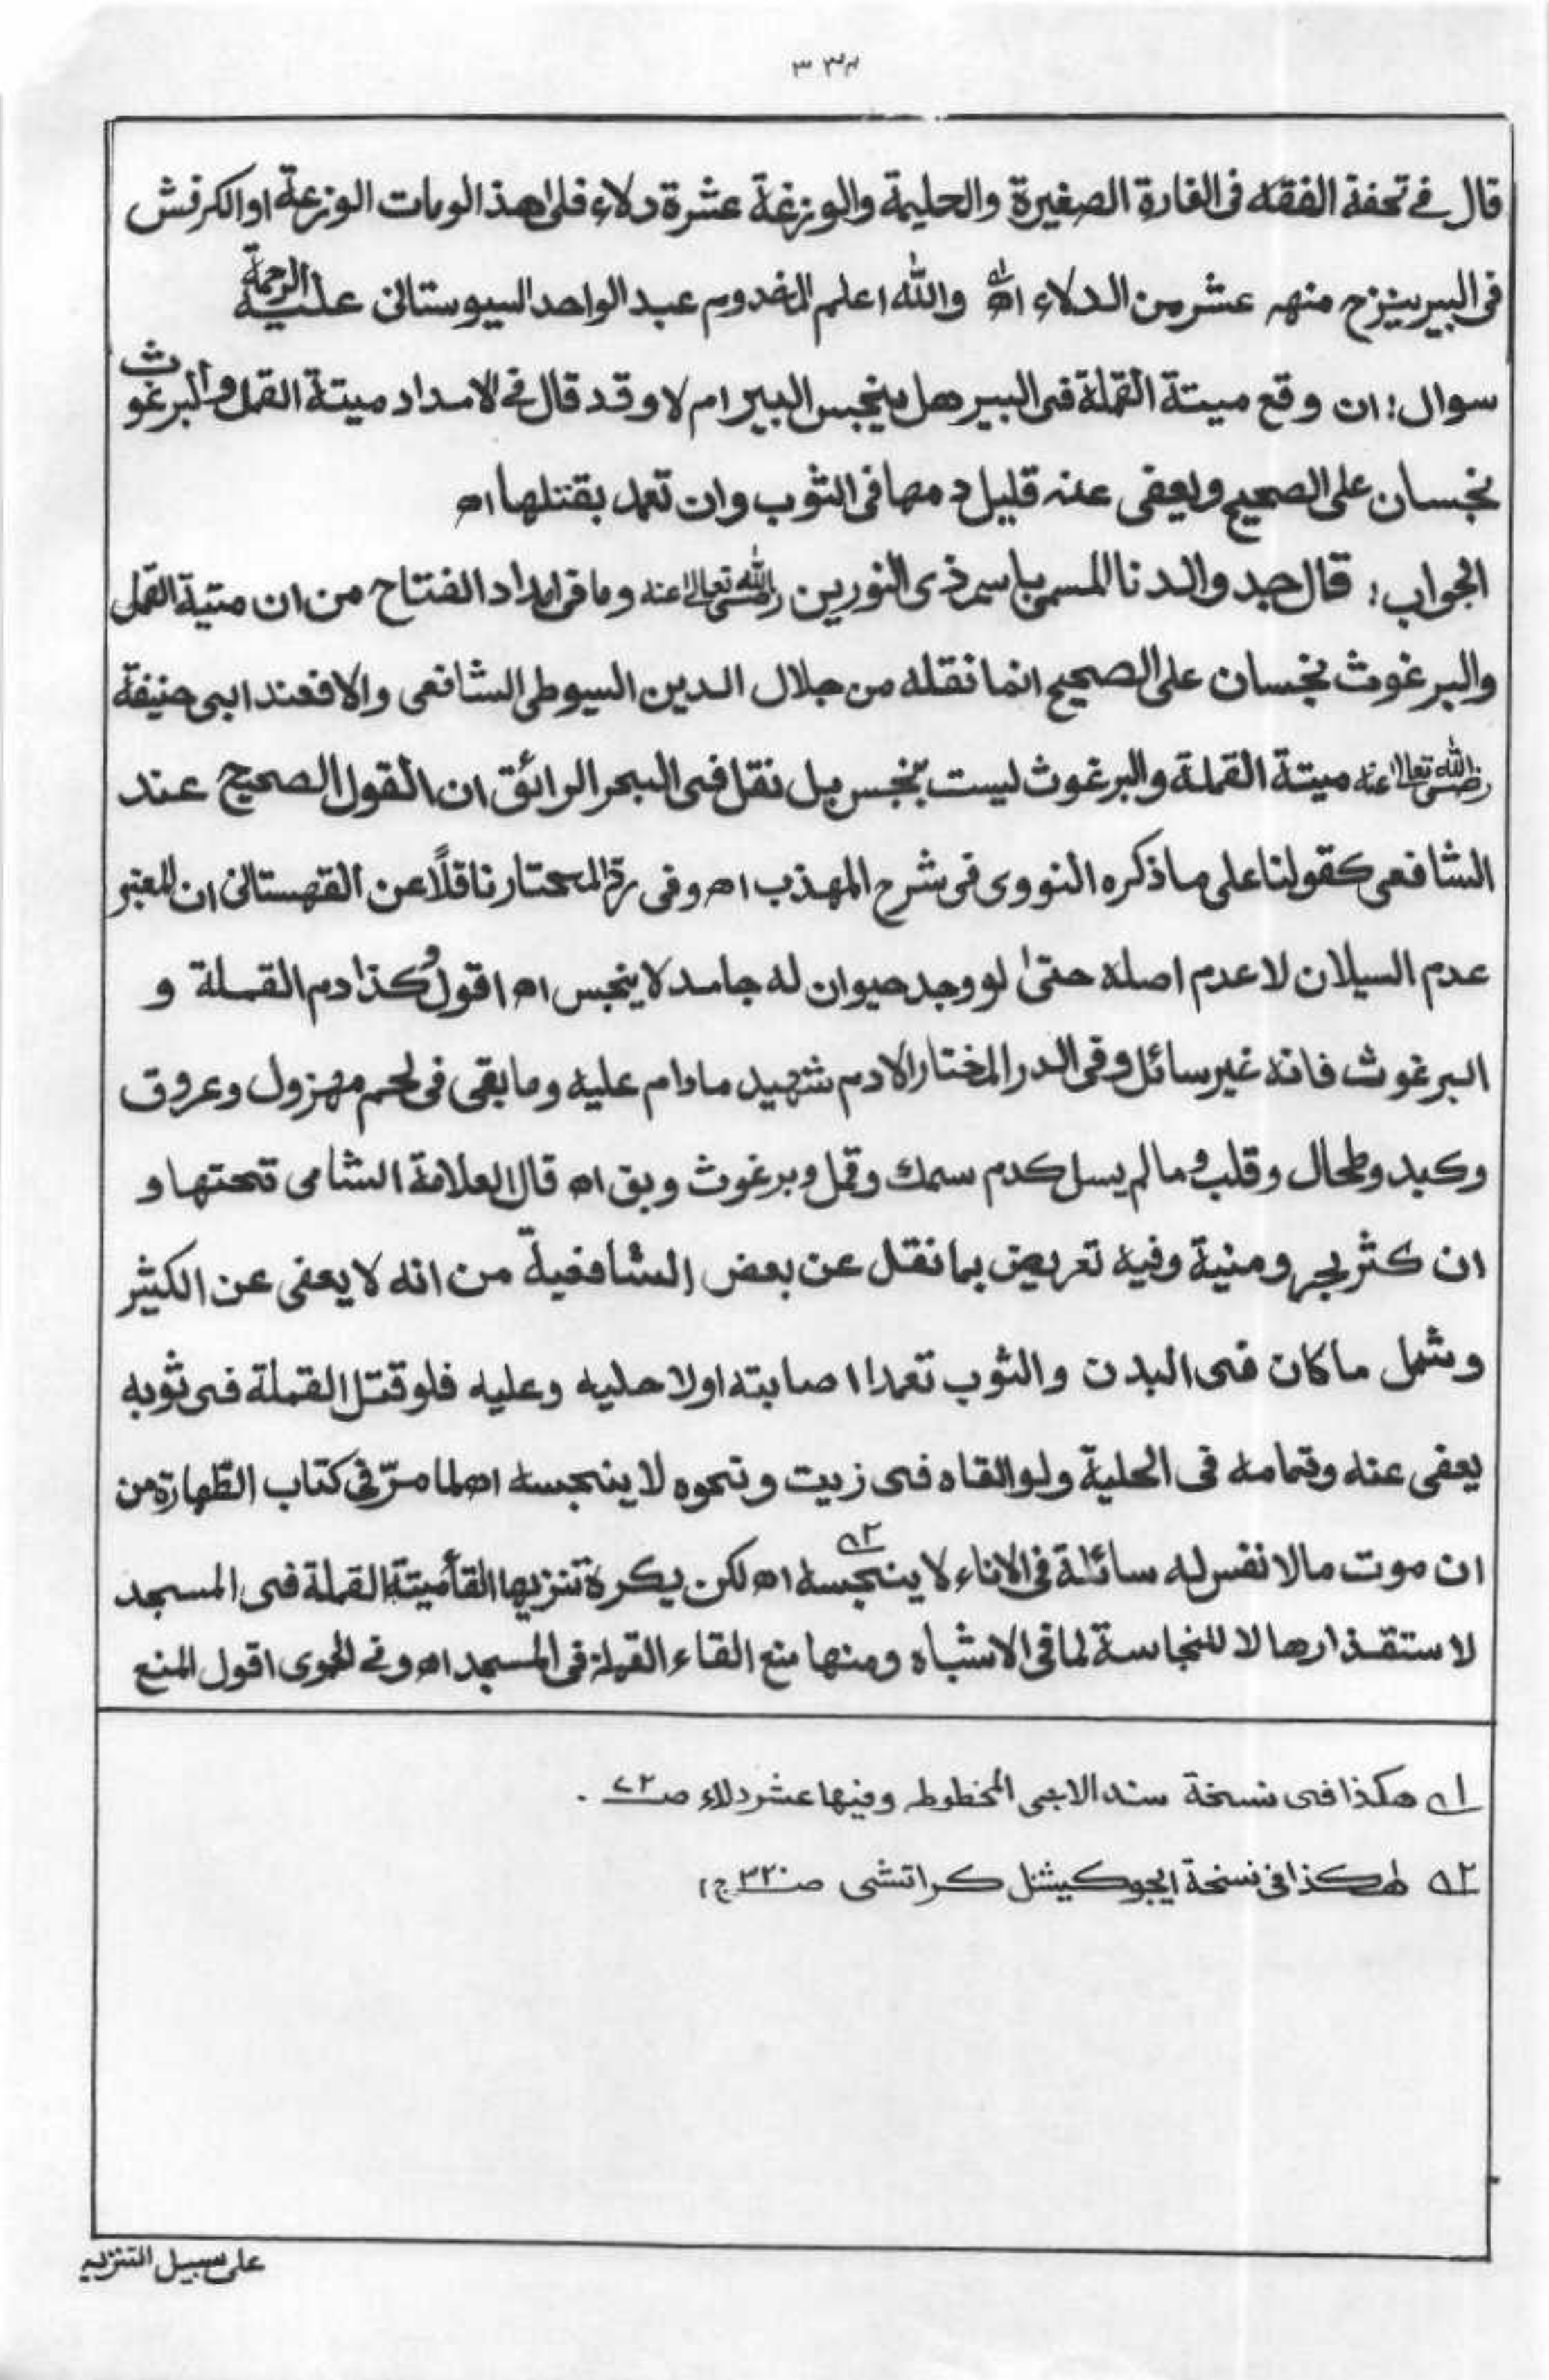 ٣٣٤
قال في تحفة الفقه فى الفارة الصغيرة والحليمة والوزغة عشرة دلاء فلى هذا لومات الوزعة او الكرفش
فى البير ينزح منه عشر من الدلاء اھ١ والله اعلم المخدوم عبد الواحد السيوستانى عليه الرحمة
سوال: ان وقع ميتة القملة فى البير هل ينجس البير ام لا وقد قال في الامداد ميتة القمل والبرغوث
نجسان على الصحيح ويعفى عنه قليل دمها فى الثوب وان تعمد بقتلها اھ
الجواب: قال جد والدنا المسمى باسم ذى النورين رضى الله تعالىٰ عنه وما فى امداد الفتاح من ان متية القمل
والبرغوث نجسان على الصحيح انما نقله من جلال الدين السيوطى الشافعى والا فعند ابى حنيفة
رضى الله تعالىٰ عنه ميتة القملة والبرغوث ليست بنجس بل نقل فى البحر الرائق ان القول الصحيح عند
الشافعى كقولنا على ما ذكره النووى فى شرح المهذب اھ وفى رد المحتار ناقلًا عن القهستانى ان المعتبر
عدم السيلان لا عدم اصله حتىٰ لو وجد حيوان له جامد لا ينجس اھ اقول وكذا دم القملة و
البرغوث فانه غير سائل وفى الدر المختار الا دم شهيد مادام عليه وما بقى فى لحم مهزول وعروق
وكبد وطحال وقلب وما لم يسل كدم سمك وقمل وبرغوث وبق اھ قال العلامة الشامى تحتها و
ان كثر بحر ومنية وفيه تعريض بما نقل عن بعض الشافعية من انه لا يعفى عن الكثير
وشمل ما كان فى البدن والثوب تعمدا اصابته اولا حليه وعليه فلو قتل القملة فى ثوبه
يعفى عنه وتمامه فى الحلية ولو القاه فى زيت ونحوه لا ينجسه اھ لما مرّ في كتاب الطهارة من
ان موت مالا نفس له سائلة فى الاناء لا ينجسه٢ اھ لكن يكره تنزيها القأ ميتة القملة فى المسجد
لاستقذارها لا للنجاسة لما فى الاشباه ومنها منع القاء القملة فى المسجد اھ وفي الحموى اقول المنع
١ هكذا فى نسخة سندالاجى المخطوطه وفيها عشر دلاء صـ٢٢ .
٢ هٰكذا فى نسخة ايجوكيشنل كراتشى صـ٣٢٠ ج١
على سبيل التنزيه